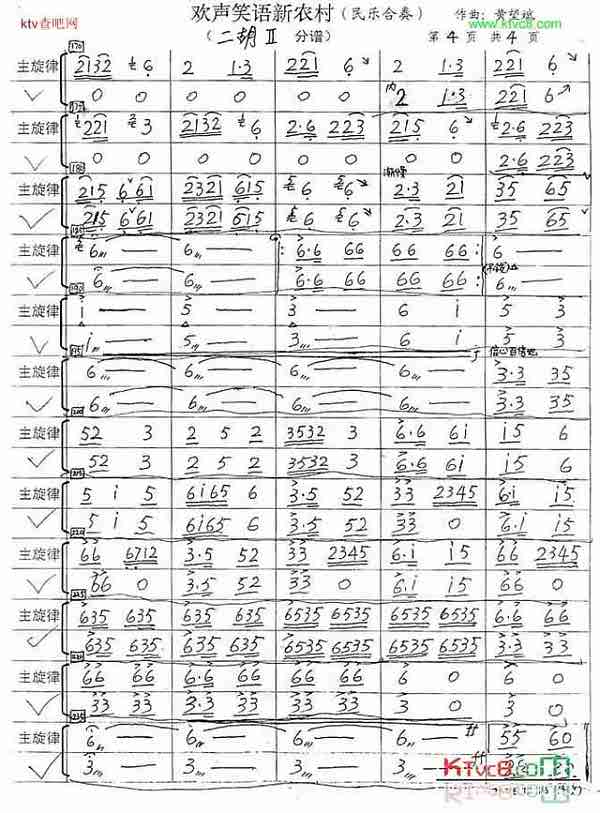 ktv查吧网 欢声笑语新农村(民乐合奏) 作曲:黄望斌 www.ktvc8.com
(二胡Ⅱ 分谱) 第4页 共4页
170
主旋律 2132 6 2 1·3 221 6 2 1·3 221 6
0 0 0 0 0 0 2 1·3 221 6
主旋律 221 3 2132 6 2·6 223 215 6 2·6 223
0 0 0 0 0 0 0 0 2·6 223
180 渐慢
主旋律 215 661 2321 615 6 6 2·3 21 35 65
215 661 2321 615 6 6 2·3 21 35 65
主旋律 6 — 6 — 6·6 66 66 66 6 —
6 — 6 — 6·6 66 66 66 6 —
190
主旋律 i — 5 — 3 — 6 i 5 3
i — 5 — 3 — 6 i 5 3
主旋律 6 — 6 — 6 — 6 — 3·3 35
6 — 6 — 6 — 6 — 3·3 35
主旋律 52 3 2 5 2 3532 3 6·6 6i i5 6
52 3 2 5 2 3532 3 6·6 6i i5 6
主旋律 5 i 5 6i65 6 3·5 52 33 2345 6·i i5
5 i 5 6i65 6 3·5 52 33 0 6·i i5
主旋律 66 6712 3·5 52 33 2345 6·i i5 66 2345
66 0 3·5 52 33 0 6·i i5 66 0
主旋律 635 635 635 635 6535 6535 6535 6535 635 635
635 635 635 635 6535 6535 6535 6535 635 635
主旋律 66 66 6·6 66 66 66 6 0 6 0
33 33 3·3 33 33 33 3 0 3 0
主旋律 6 — 6 — 6 — 6 — 55 60
3 — 3 — 3 — 3 —
KTvc8.com